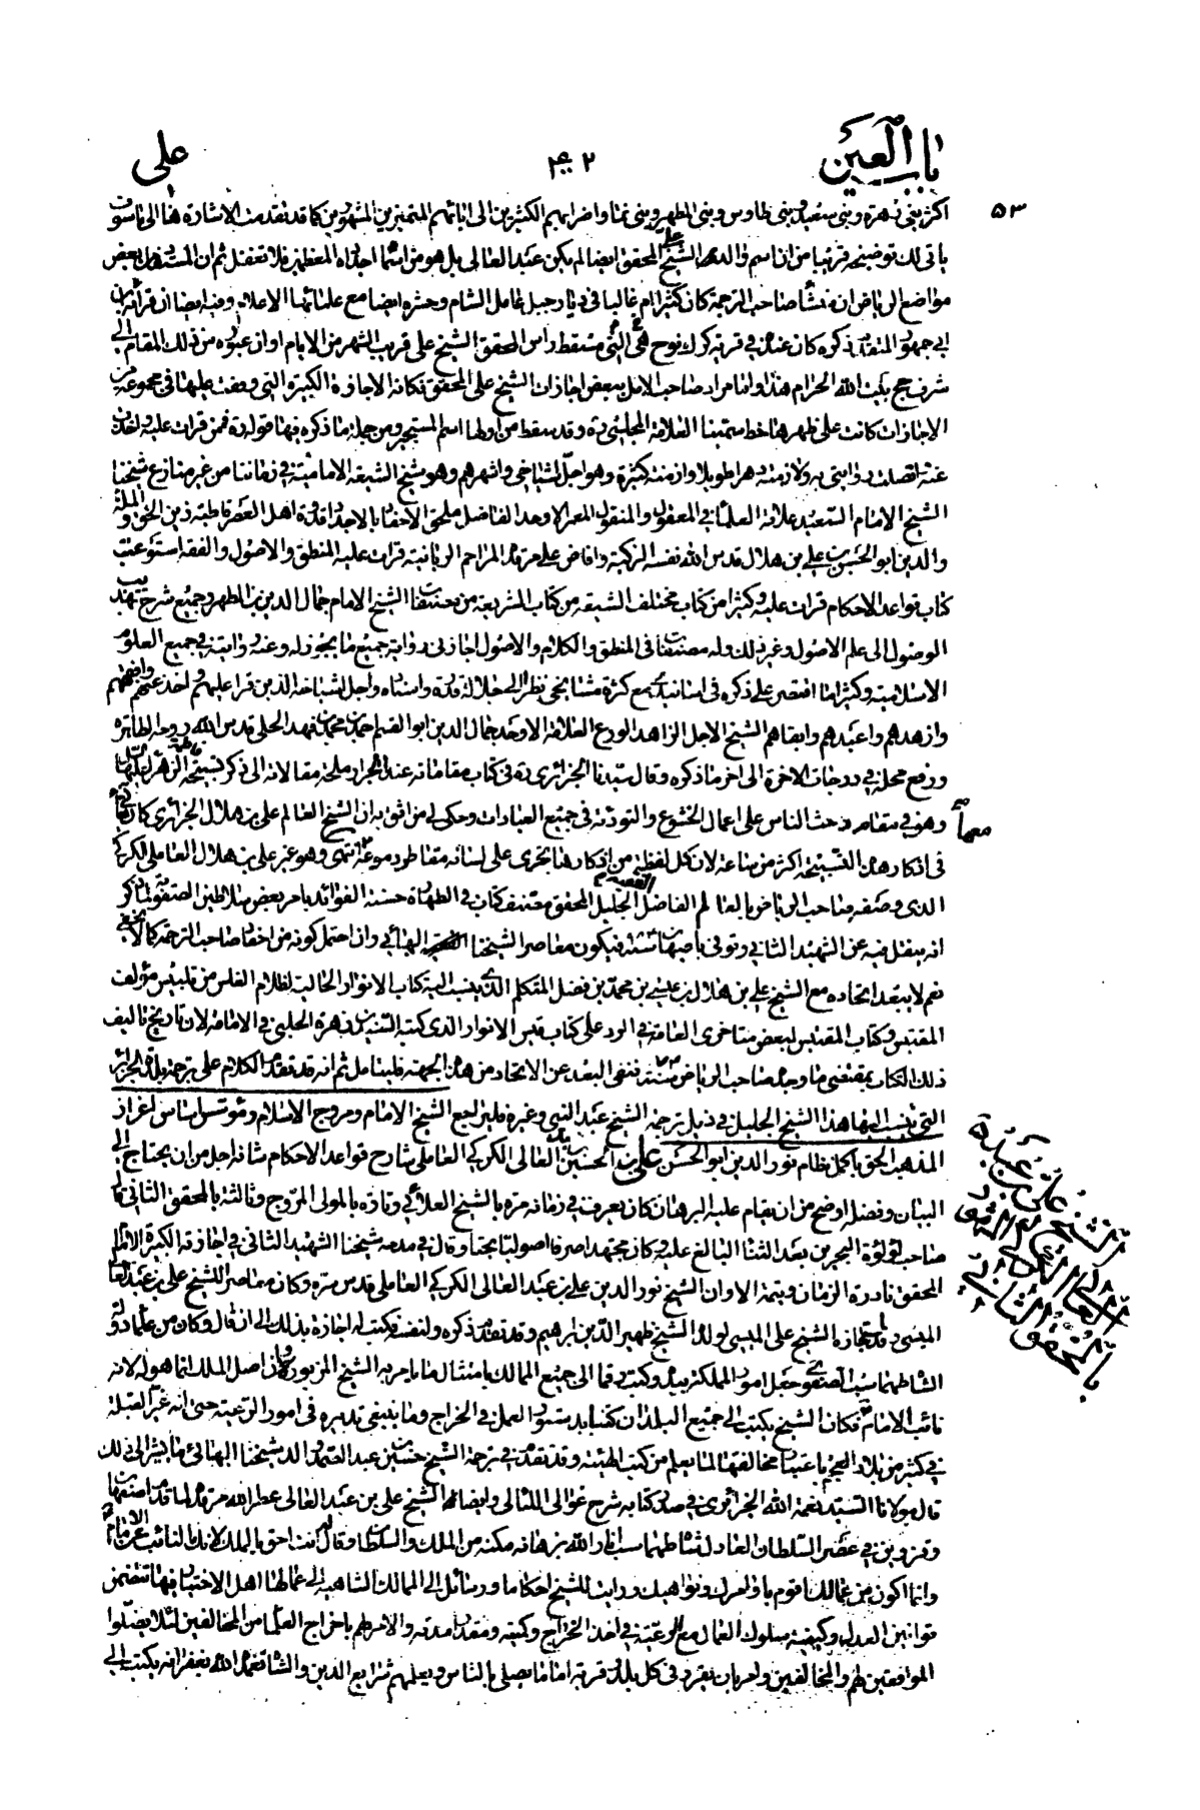 باب العين
۴۰۲
على
۵۳
اكثر بنى زهرة وبنى سعيد وبنى طاوس وبنى المطهر وبنى نما واضرابهم الكثيرين الى ابائهم المتميزين المشهورين كما قد تقدمت الاشارة الى
ياتى لك توضيحه قريبا من ان اسم والد الشيخ على المحقق ايضا لم يكن عبد العالى بل هو من اسماء اجداده المعظمين فلا تغفل ثم ان المستفاد من بعض
مواضع الرياض ان منشأ صاحب الترجمة كان كثير ايام غالبا فى ديار جبل عامل الشام وحشره ايضا مع علمائها الاعلام وفيه ايضا ان قرائة ابن
ابى جمهور المتقدم ذكره كان عنده فى قرية كرك نوح التى مسقط راس المحقق الشيخ على قريب الشهر من الايام اوان عبوره من ذلك المقام الى
شرف حج بيت الله الحرام هذا واما مراد صاحب الامل ببعض اجازات الشيخ على المحقق فكانه الاجازة الكبيرة التى وقفت عليها فى مجموعة من
الاجازات كانت على ظهرها خط سمينا العلامة المجلسى ره وقد سقط من اولها اسم المستجيز ومن جملة ما ذكره فيها قوله ره فممن قرات عليه واخذت
عنه واتصلت روايتى به ولازمته دهرا طويلا وازمنة كثيرة وهو اجل اشياخى واشهرهم وهو شيخ الشيعة الامامية فى زماننا من غير منازع شيخنا
الشيخ الامام السعيد علامة العلماء فى المعقول والمنقول المعمر الاوحد الفاضل ملحق الاحفاد بالاجداد قدوة اهل العصر قاطبة زين الحق والملة
والدين ابو الحسن على بن هلال قدس الله نفسه الزكية وافاض على مرقده المراحم الربانية قرات عليه المنطق والاصول والفقه استوعبت
كتاب قواعد الاحكام قرات عليه وكثيرا من كتاب مختلف الشيعة من كتاب الشريعة من مصنفات الشيخ الامام جمال الدين بن المطهر وجميع شرح تهذيب
الوصول الى علم الاصول وغير ذلك وله مصنفات فى المنطق والكلام والاصول اجاز لى رواية جميع ما يجوز له وعنه روايته فى جميع العلوم
الاسلامية وكثيرا ما اقتصر على ذكره فى اسانيدى مع كثرة مشايخى نظرا الى جلالة قدره واسناده واجل اشياخه الذين قرا عليهم واخذ عنهم وافقههم
وازهدهم واعبدهم واتقاهم الشيخ الاجل الزاهد الورع العلامة الاوحد جمال الدين ابو العباس احمد بن محمد بن فهد الحلى قدس الله روحه الطاهرة
ورفع محله فى درجات الاخرة الى اخر ما ذكره وقال سيدنا الجزائرى ره فى كتاب مقاماته عند انجرار ملحة مقالاته الى ذكر تسبيحة الزهراء عليها السلام
وهو فى مقام حث الناس على اعمال الخشوع والتؤدة فى جميع العبادات وحكى لى من اثق به ان الشيخ العالم على بن هلال الجزائرى كان
فى اذكار هذه التسبيحة اكثر من ساعة لان كل لفظة من اذكارها تجرى على لسانه تتقاطر دموعه انتهى وهو غير على بن هلال العاملى الكركى
الذى وصفه صاحب الرياض بالعالم الفاضل الجليل الفقيه المحقق مصنف كتاب فى الطهارة حسنة الفوائد بامر بعض سلاطين الصفوية
انه ينقل فيه عن الشهيد الثانى وتوفى باصبهان سنة فيكون معاصر الشيخنا البهائى وان احتمل كونه من احفاد صاحب الترجمة كما لا يخفى
نعم لا يبعد اتحاده مع الشيخ على بن هلال بن عيسى بن محمد بن فضل المتكلم الذى ينسب اليه كتاب الانوار الجالية لظلام الغلس من تلبيس مؤلف
المقتبس وكتاب المقتبس لبعض متاخرى العامة فى الرد على كتاب قبس الانوار الذى كتبه السيد بن زهرة الحلبى فى الامامة لان تاريخ تاليف
ذلك الكتاب بمقتضى ما وجده صاحب الرياض سنة فنفى البعد عن الاتحاد من هذه الجهة فليتامل ثم انه قد تقدم الكلام على ترجمة بلاد الجزائر
التى ينسب اليها هذا الشيخ الجليل فى ذيل ترجمة الشيخ عبد النبى وغيره فليراجع الشيخ الامام ومروج الاسلام ومؤسس اساس
المذهب الحق باكمل نظام نور الدين ابو الحسن على بن الحسين بن عبد العالى الكركى العاملى شارح قواعد الاحكام شانه اجل من ان يحتاج الى
البيان وفضله اوضح من ان يقام عليه البرهان كان يعرف فى زمانه مرة بالشيخ العلائى وتارة بالمولى المروج وثالثة بالمحقق الثانى قال
صاحب لؤلؤة البحرين بعد الثناء البالغ عليه وكان مجتهدا صرفا اصوليا بحتا وقال فى مدحه شيخنا الشهيد الثانى فى اجازته الكبيرة الامام
المحقق نادرة الزمان ويتيمة الاوان الشيخ نور الدين على بن عبد العالى الكركى العاملى قدس سره وكان معاصر للشيخ على بن عبد العالى
الميسى وقد استجازه الشيخ على الميسى لولده الشيخ ظهير الدين ابرهيم وقد تقدم ذكره ولنفسه فكتب له اجازة بذلك الى ان قال وكان من علماء دولة
الشاه طهماسب الصفوى جعل امور المملكة بيده وكتب رقما الى جميع الممالك بامتثال ما يامر به الشيخ المزبور وان اصل الملك انما هو له لانه
نائب الامام ع فكان الشيخ يكتب الى جميع البلدان كتبا بدستور العمل فى الخراج وما ينبغى تدبيره فى امور الرعية حتى انه غير القبلة
فى كثير من بلاد العجم باعتبار مخالفتها لما يعلم من كتب الهيئة وقد تقدم فى ترجمة الشيخ حسين بن عبد الصمد والد شيخنا البهائى ما يشير الى ذلك
قال مولانا السيد نعمة الله الجزائرى فى صدر كتابه شرح غوالى اللئالى وايضا الشيخ على بن عبد العالى عطر الله مرقده لما قدم اصفهان
وقزوين فى عصر السلطان العادل شاه طهماسب انار الله برهانه مكنه من الملك والسلطان وقال له انت احق بالملك لانك النائب عن الامام ع
وانما اكون من عمالك اقوم باوامرك ونواهيك ورايت للشيخ احكاما ورسائل الى الممالك الشاهية الى عمالها اهل الاختيار فيها تتضمن
قوانين العدل وكيفية سلوك العمال مع الرعية فى اخذ الخراج وكميته ومقدار مدته والامر لهم باخراج العلماء من المخالفين لئلا يضلوا
الموافقين لهم والمخالفين وامر بان يقرر فى كل بلد وقرية اماما يصلى بالناس ويعلمهم شرايع الدين والشاه تغمده الله بغفرانه يكتب الى
الشيخ على بن عبد
العالى الكركى المشهور
بالمحقق الثانى ره